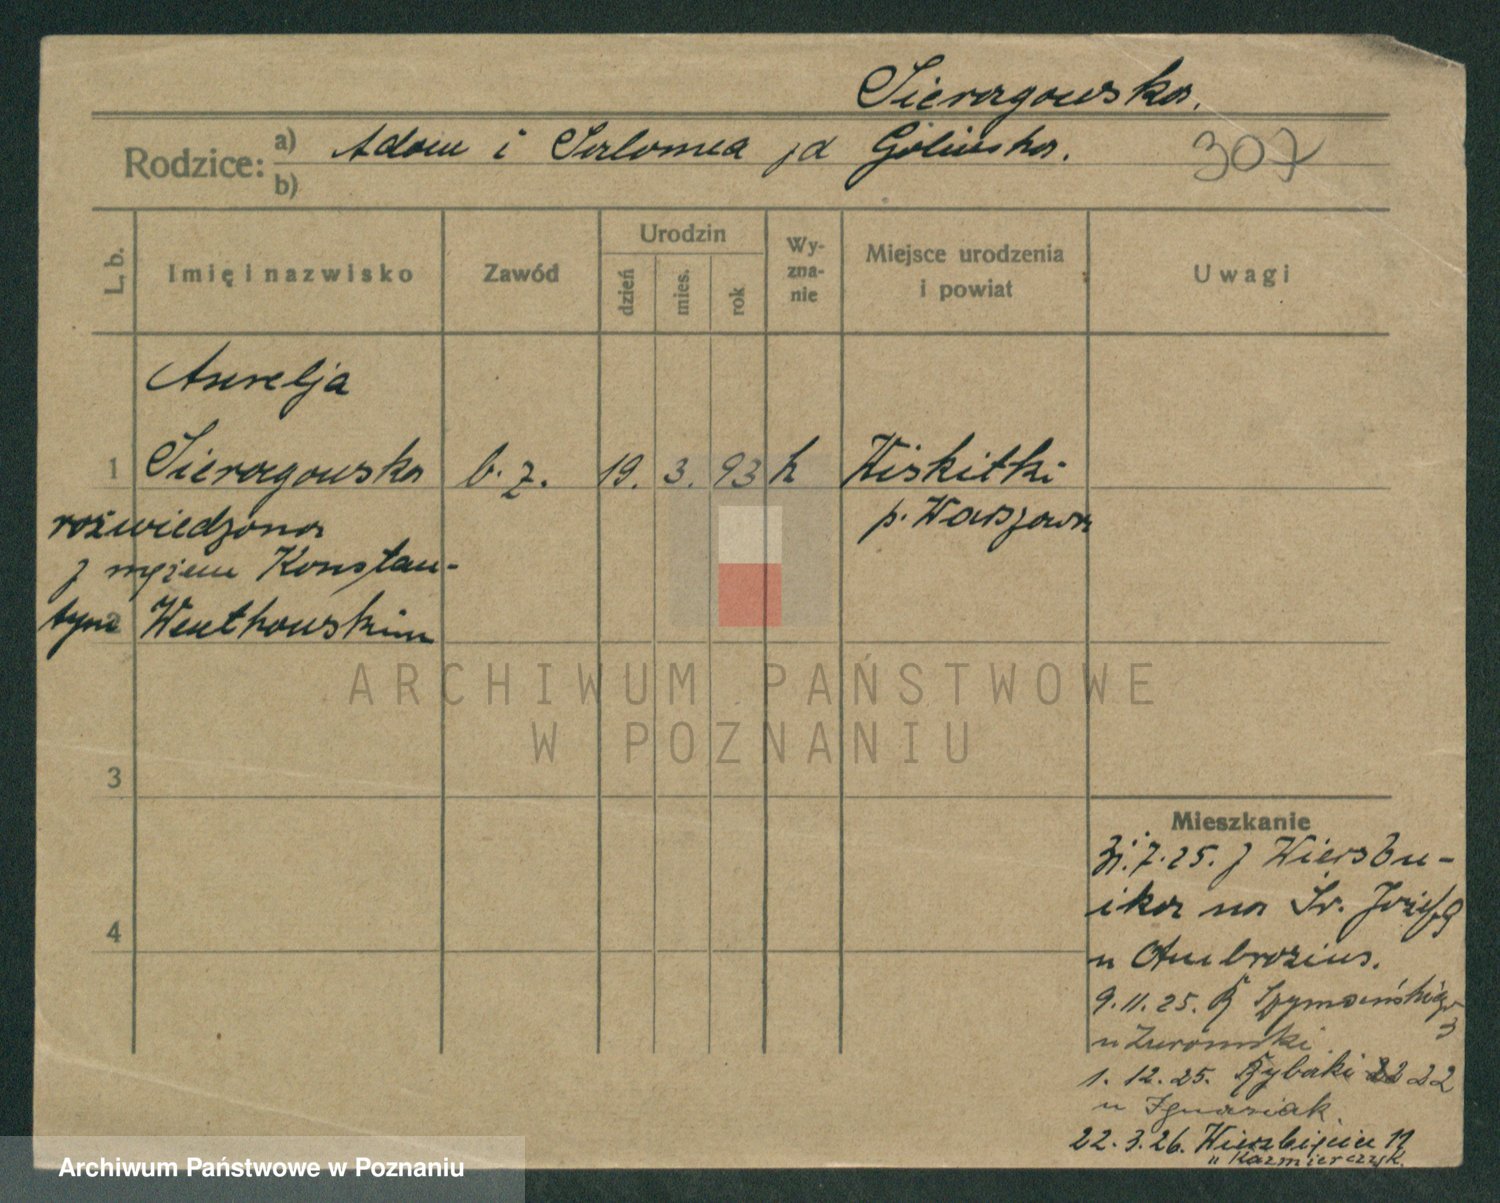 Sierzgowska.
Rodzice: a) Adam i Salomea zd Golińska.
b)
307
L. b.
Imię i nazwisko
Zawód
Urodzin
dzień
mies.
rok
Wy-
zna-
nie
Miejsce urodzenia
i powiat
Uwagi
Aurelja
1 Sierzgowska b. z. 19. 3. 93 k Wiskitki
p. Warszawa
rozwiedzona
z mężem Konstan-
tym 2 Wentkowskim
3
4
Mieszkanie
31.7.25. z Wierzbn-
ika na Św. Józefa 9
u Ambrozius.
9.11.25. Szymańskiego
3
u Żuromski
1.12.25. Rybaki 22 22
u Ignasiak.
22.3.26. Wierzbięcice 11
u Kazmierczak.
ARCHIWUM PAŃSTWOWE
W POZNANIU
Archiwum Państwowe w Poznaniu